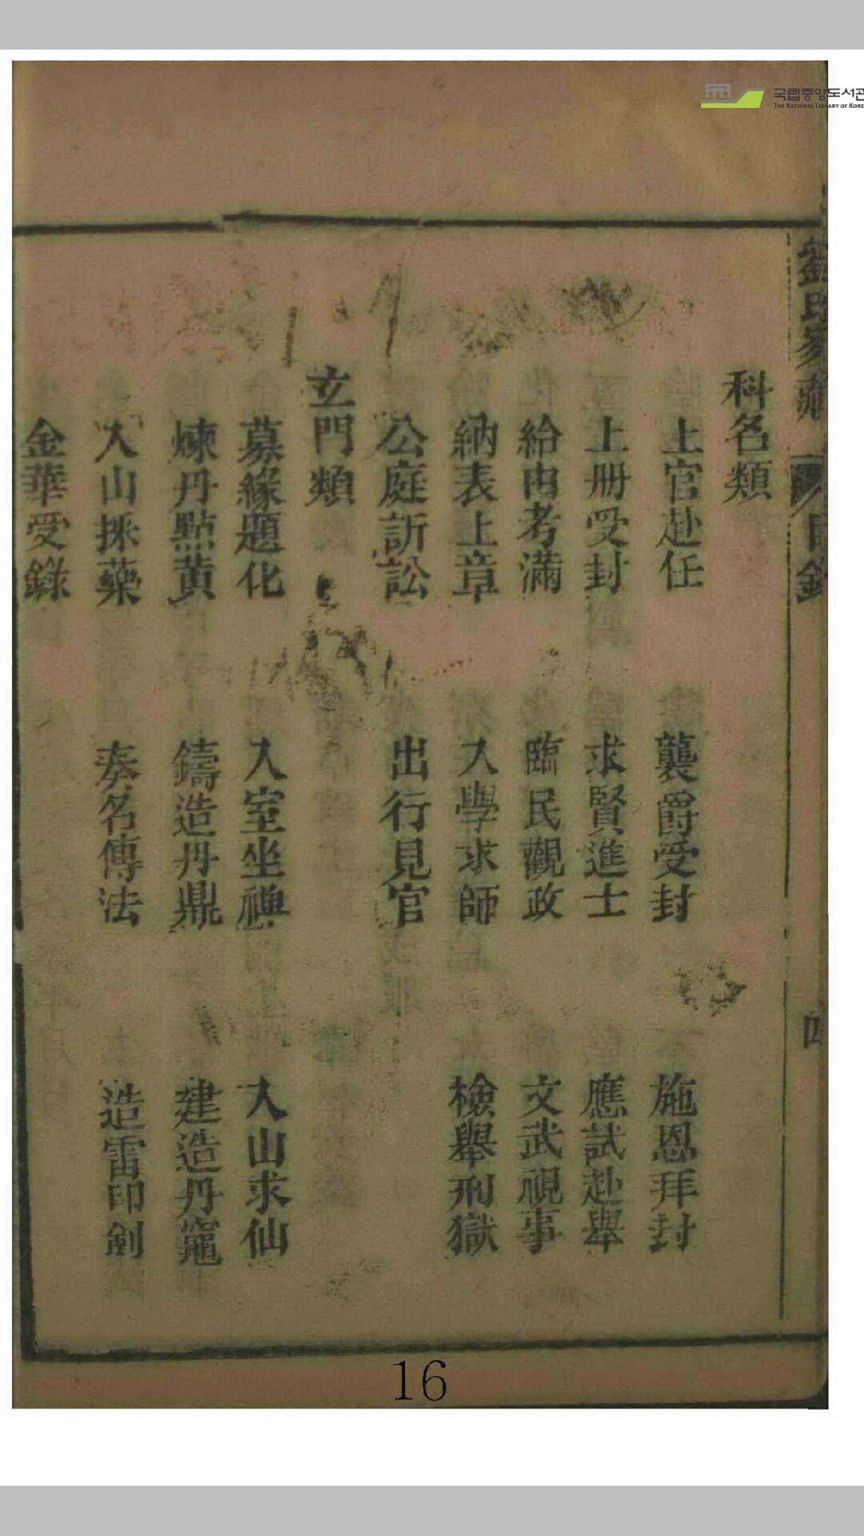 科名類
上官赴任 襲爵受封 施恩拜封
上册受封 求賢進士 應試赴舉
給由考滿 臨民觀政 文武視事
納表上章 入學求師 檢舉刑獄
公庭訢訟 出行見官
玄門類
募緣題化 入室坐禪 入山求仙
煉丹點黄 鑄造丹鼎 建造丹竈
入山採藥 奏名傳法 造雷印劍
金華受錄
目錄
四
국립중앙도서관
THE NATIONAL LIBRARY OF KOREA
16